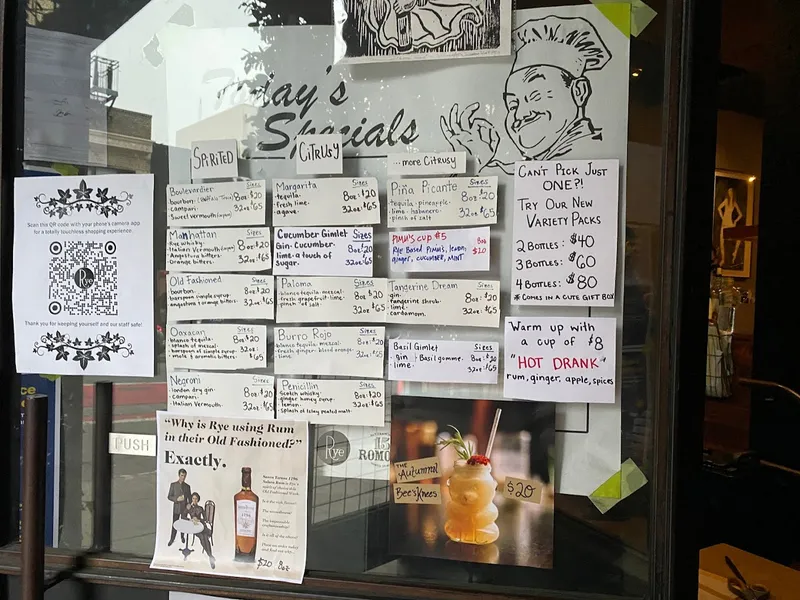 Today's
Specials
SPIRITED
CITRUSY
...more CITRUSY
Scan the QR code with your phone's camera app
for a totally touchless shopping experience.
Rye
Thank you for keeping yourself and our staff safe!
PUSH
Boulevardier Sizes
bourbon 8oz: $20
campari 32oz: $65
Sweet vermouth
Manhattan Sizes
Rye whisky 8oz: $20
Italian Vermouth
Angostura bitters 32oz: $65
Orange bitters
Old Fashioned Sizes
bourbon 8oz: $20
barspoon simple syrup
angostura & orange bitters 32oz: $65
Oaxacan Sizes
blanco tequila 8oz: $20
splash of mezcal
barspoon of simple syrup 32oz: $65
mole & aromatic bitters
Negroni Sizes
london dry gin 8oz: $20
campari
Italian Vermouth 32oz: $65
Margarita Sizes
tequila 8oz: $20
fresh lime
agave 32oz: $65
Cucumber Gimlet Sizes
Gin. Cucumber. 8oz: $20
lime. a touch of
sugar. 32oz: $65
Paloma Sizes
blanco tequila. mezcal 8oz: $20
fresh grapefruit. lime.
pinch of salt 32oz: $65
Burro Rojo Sizes
blanco tequila. mezcal 8oz: $20
fresh ginger. blood orange
lime 32oz: $65
Penicillin Sizes
Scotch whisky 8oz: $20
ginger honey syrup
lemon 32oz: $65
splash of Islay peated malt.
Piña Picante Sizes
tequila. pineapple. 8oz: $20
lime. habanero.
pinch of salt 32oz: $65
PIMM'S CUP #5 8oz
RYE BASED PIMM'S, lemon, $20
ginger, CUCUMBER, MINT
Tangerine Dream Sizes
gin 8oz: $20
tangerine shrub
lime 32oz: $65
cardamom.
Basil Gimlet Sizes
gin. Basil gomme. 8oz: $20
lime. 32oz: $65
CAN'T PICK JUST
ONE?!
TRY OUR NEW
VARIETY PACKS
2 BOTTLES: $40
3 BOTTLES: $60
4 BOTTLES: $80
* COMES IN A CUTE GIFT BOX
Warm up with
a cup of $8
"HOT DRANK"
rum, ginger, apple, spices
"Why is Rye using Rum
in their Old Fashioned?"
Exactly.
$20 8oz
Rye
ROMO
THE Autumnal
Bee's Knees
$20